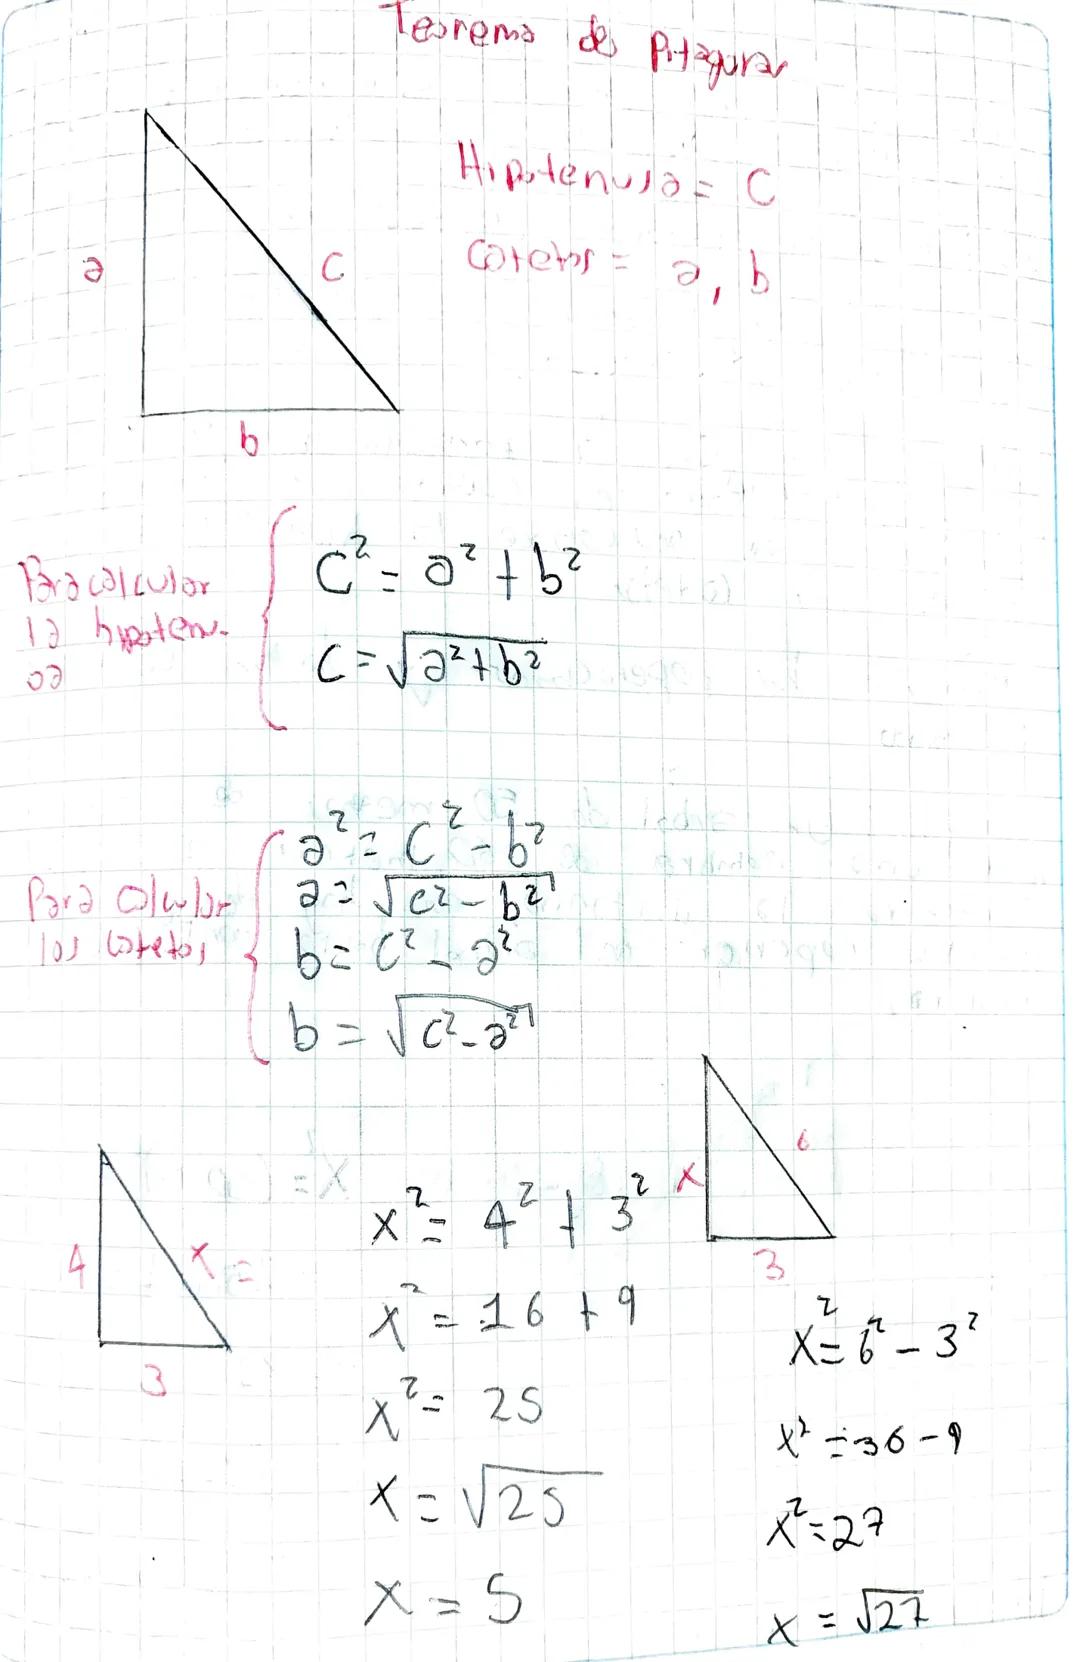 Teorema de Pitagoras
Hipotenusa = C
Catetos = a, b
a
c
b
Para calcular
la hipotenu-
sa
C² = a² + b²
C = √a² + b²
Para calcular
los catetos
a² = c² - b²
a = √c² - b²
b = c² - a²
b = √c² - a²
4
x =
3
x² = 4² + 3²
x² = 16 + 9
x² = 25
x = √25
x = 5
x
6
3
x² = 6² - 3²
x² = 36 - 9
x² = 27
x = √27